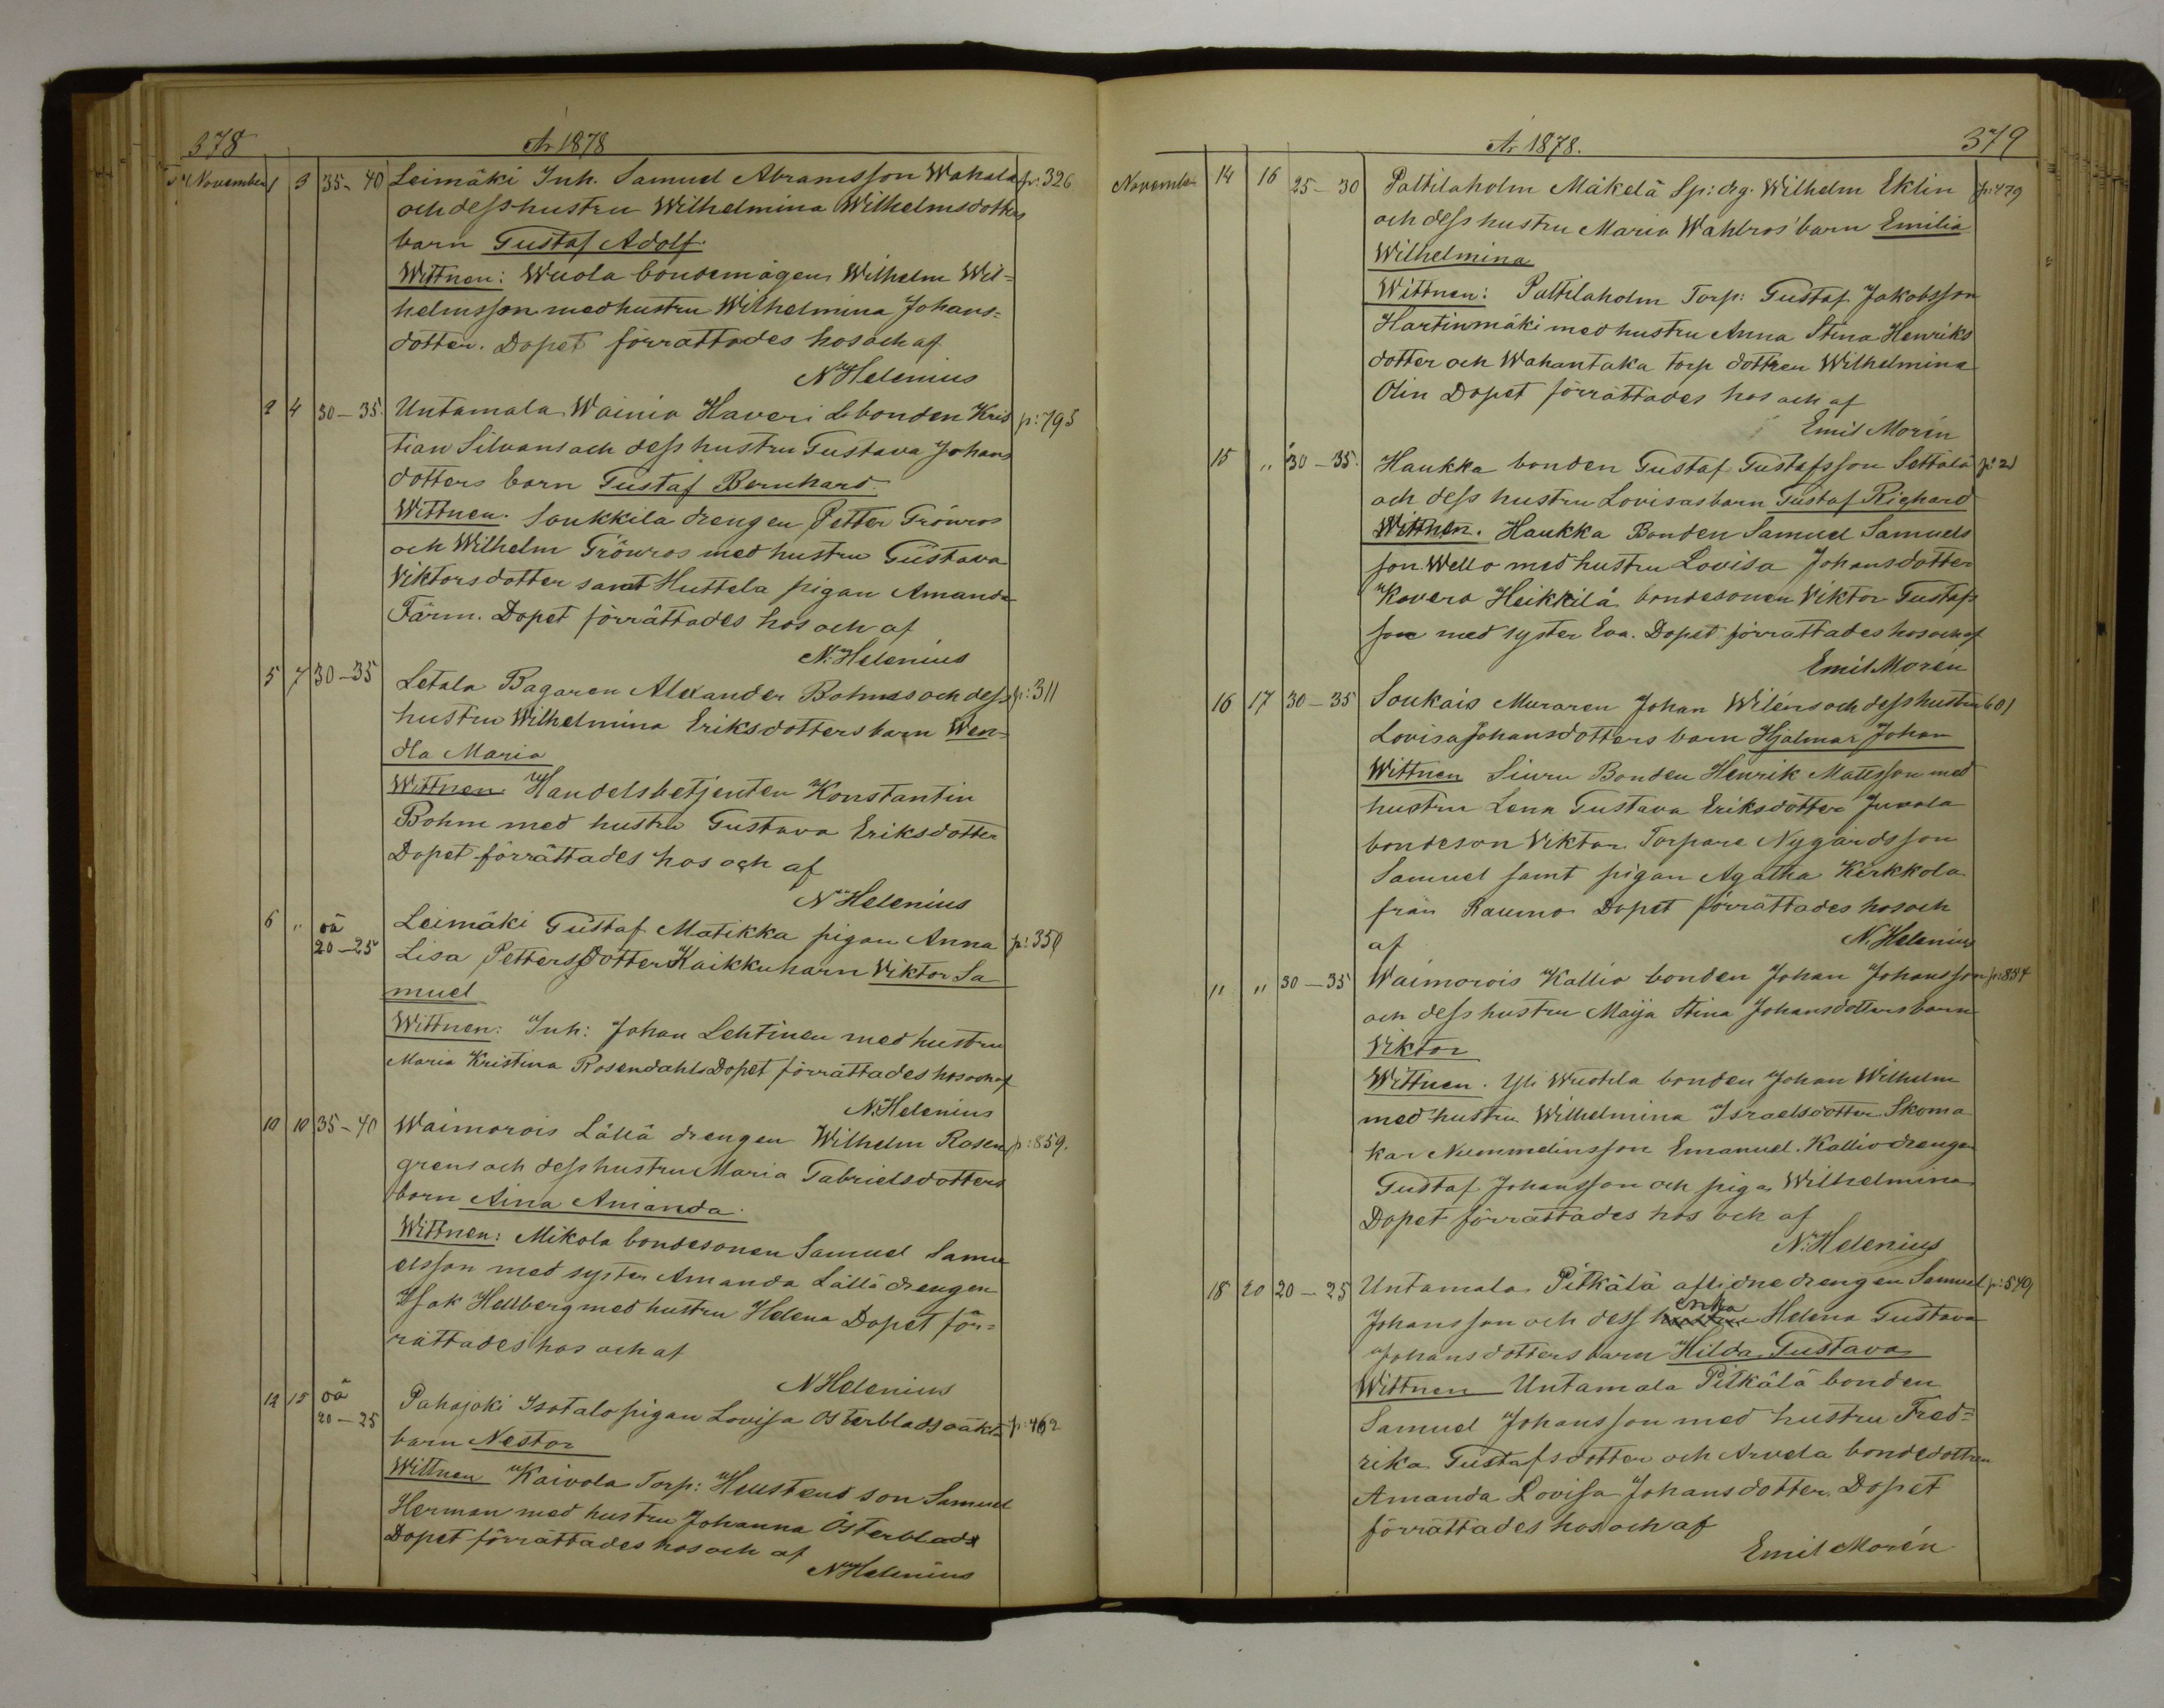 378
År 1878
November 1 3 35-40 Leimäki Inh. Samuel Abramsson Wahala p: 326
och dess hustru Wilhelmina Wilhelmsdotters
barn Gustaf Adolf.
Wittnen: Wuola bondemågen Wilhelm Wil=
helmsson med hustru Wilhelmina Johans=
dotter. Dopet förrättades hos och af
N Helenius
2 4 30-35. Untamala Wainio Haveri bonden Kris p: 795
tian Silvans och dess hustru Gustava Johans
dotters barn Gustaf Bernhard.
Wittnen. Soukkila drengen Petter Grönros
och Wilhelm Grönros med hustru Gustava
Viktorsdotter samt Huttela pigan Amanda
Färm. Dopet förrättades hos och af
N. Helenius
5 7 30-35 Letala Bagaren Alexander Bohms och dess p: 311
hustru Wilhelmina Eriksdotters barn Wen=
dla Maria
Wittnen. Handelsbetjenten Konstantin
Bohm med hustru Gustava Eriksdotter
Dopet förrättades hos och af
N Helenius
6 " oä 20-25 Leimäki Gustaf Matikka pigan Anna p: 350
Lisa Pettersdotter Kaikku barn Viktor Sa
muel
Wittnen: Inh: Johan Lehtinen med hustru
Maria Kristina Rosendahls Dopet förrättades hos och af
N. Helenius
10 10 35-40 Waimorois Lällä drengen Wilhelm Rosen p: 859.
grens och dess hustru Maria Gabrielsdotters
barn Aina Amanda.
Wittnen: Mikola bondesonen Samuel Samu
elsson med syster Amanda Lällä drengen
Isak Hellberg med hustru Helena Dopet för=
rättades hos och af
N Helenius
12 15 oä 20-25 Pahojoki Isotalo pigan Lovisa Österblads oäkta p: 462
barn Nestor
Wittnen Kaivola Torp: Heustens son Samuel
Herman med hustru Johanna Österblads
Dopet förrättades hos och af
N Helenius
År 1878.
379
November 14 16 25-30 Paltilaholm Mäkelä Sp: drg. Wilhelm Eklin p: 479
och dess hustru Maria Wahlros' barn Emilia
Wilhelmina
Wittnen: Paltilaholm Torp: Gustaf Jakobsson
Hartinmäki med hustru Anna Stina Henriks
dotter och Wahantaka torp dottren Wilhelmina
Olin Dopet förrättades hos och af
Emil Morén
15 " 30-35. Haukka bonden Gustaf Gustafsson Settälä p: 21
och dess hustru Lovisas barn Gustaf Righard
Wittnen. Haukka Bonden Samuel Samuels
son Wello med hustru Lovisa Johansdotter
Kovero Heikkilä bondesonen Viktor Gustafs
son med syster Eva. Dopet förrättades hos och af
Emil Morén
16 17 30-35 Soukais Muraren Johan Wiléns och dess hustru 601
Lovisa Johansdotters barn Hjalmar Johan
Wittnen Siuru Bonden Henrik Mattsson med
hustru Lena Gustava Eriksdotter Juvala
bondeson Viktor Torpare Nygårdsson
Samuel samt pigan Agatha Kirkkola
från Raumo Dopet förrättades hos och
af
N. Helenius
" " 30-35 Waimorois Kallio bonden Johan Johansson p: 854
och dess hustru Maija Stina Johansdotters barn
Viktor
Wittnen. Yli Wuotila bonden Johan Wilhelm
med hustru Wilhelmina Israelsdotter Skoma
kar Nummelinsson Emanuel. Kallio drengen
Gustaf Johansson och piga Wilhelmina
Dopet förrättades hos och af
N. Helenius
18 20 20-25 Untamala Pitkälä aflidne drengen Samuel p: 549
Johansson och dess enka Helena Gustava
Johansdotters barn Hilda Gustava
Wittnen Untamala Pitkälä bonden
Samuel Johansson med hustru Fred=
rika Gustafsdotter och Arvela bondedottren
Amanda Lovisa Johansdotter. Dopet
förrättades hos och af
Emil Morén